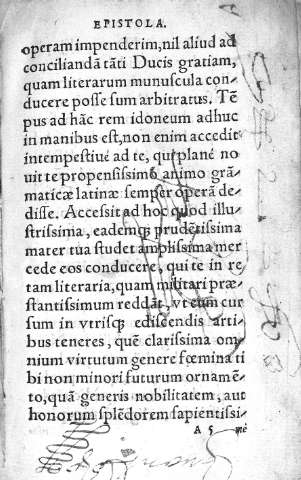 EPISTOLA.
operam impenderim, nil aliud ad
conciliandā tāti Ducis gratiam,
quam literarum munuscula con-
ducere posse sum arbitratus. Tē
pus ad hāc rem idoneum adhuc
in manibus est, non enim accedit
intempestiuè ad te, qui planè no
uit te propensissimo animo grā-
maticæ latinæ semper operā de-
disse. Accessit ad hoc quod illu-
strissima, eademq; prudētissima
mater tua studet amplissima mer
cede eos conducere, qui te in re
tam literaria, quam militari præ-
stantissimum reddāt, vt eum cur
sum in vtrisq; ediscendis arti-
bus teneres, quē clarissima om-
nium virtutum genere fœmina ti
bi non minori futurum ornamē-
to, quā generis nobilitatem, aut
honorum splēdorem sapientissi-
A 5 mè